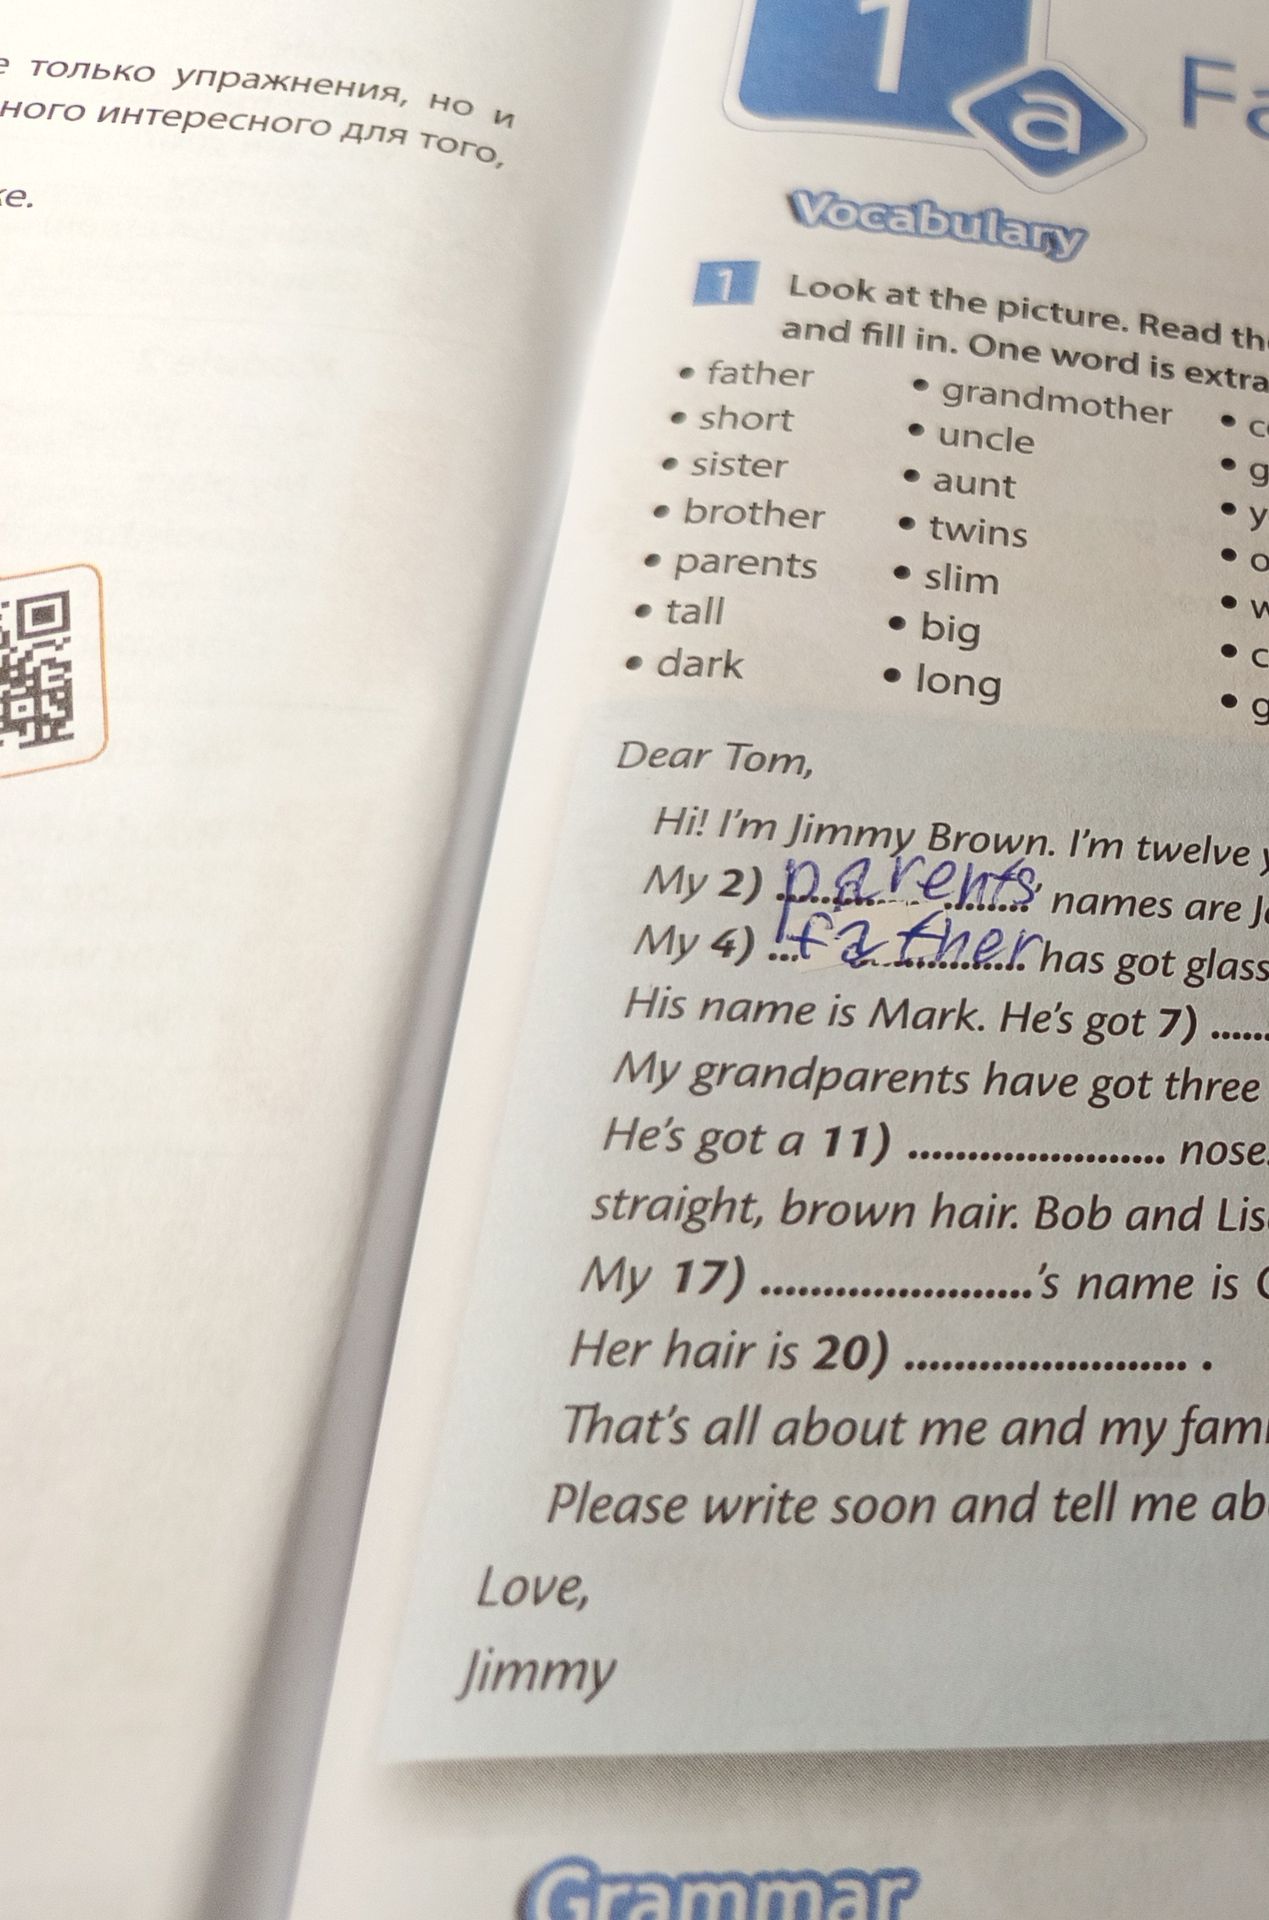 только упражнения, но и
интересного для того,
1
a
Vocabulary
1 Look at the picture. Read
and fill in. One word is extra
• father
• short
• sister
• brother
• parents
• tall
• dark
• grandmother
• uncle
• aunt
• twins
• slim
• big
• long
Dear Tom,
Hi! I'm Jimmy Brown. I'm twelve
My 2) parents' names are
My 4) father has got
His name is Mark. He's got 7) ......
My grandparents have got three
He's got a 11) ...................... nose.
straight, brown hair. Bob and
My 17) ......................'s name is
Her hair is 20) ........................ .
That's all about me and my
Please write soon and tell me
Love,
Jimmy
Grammar